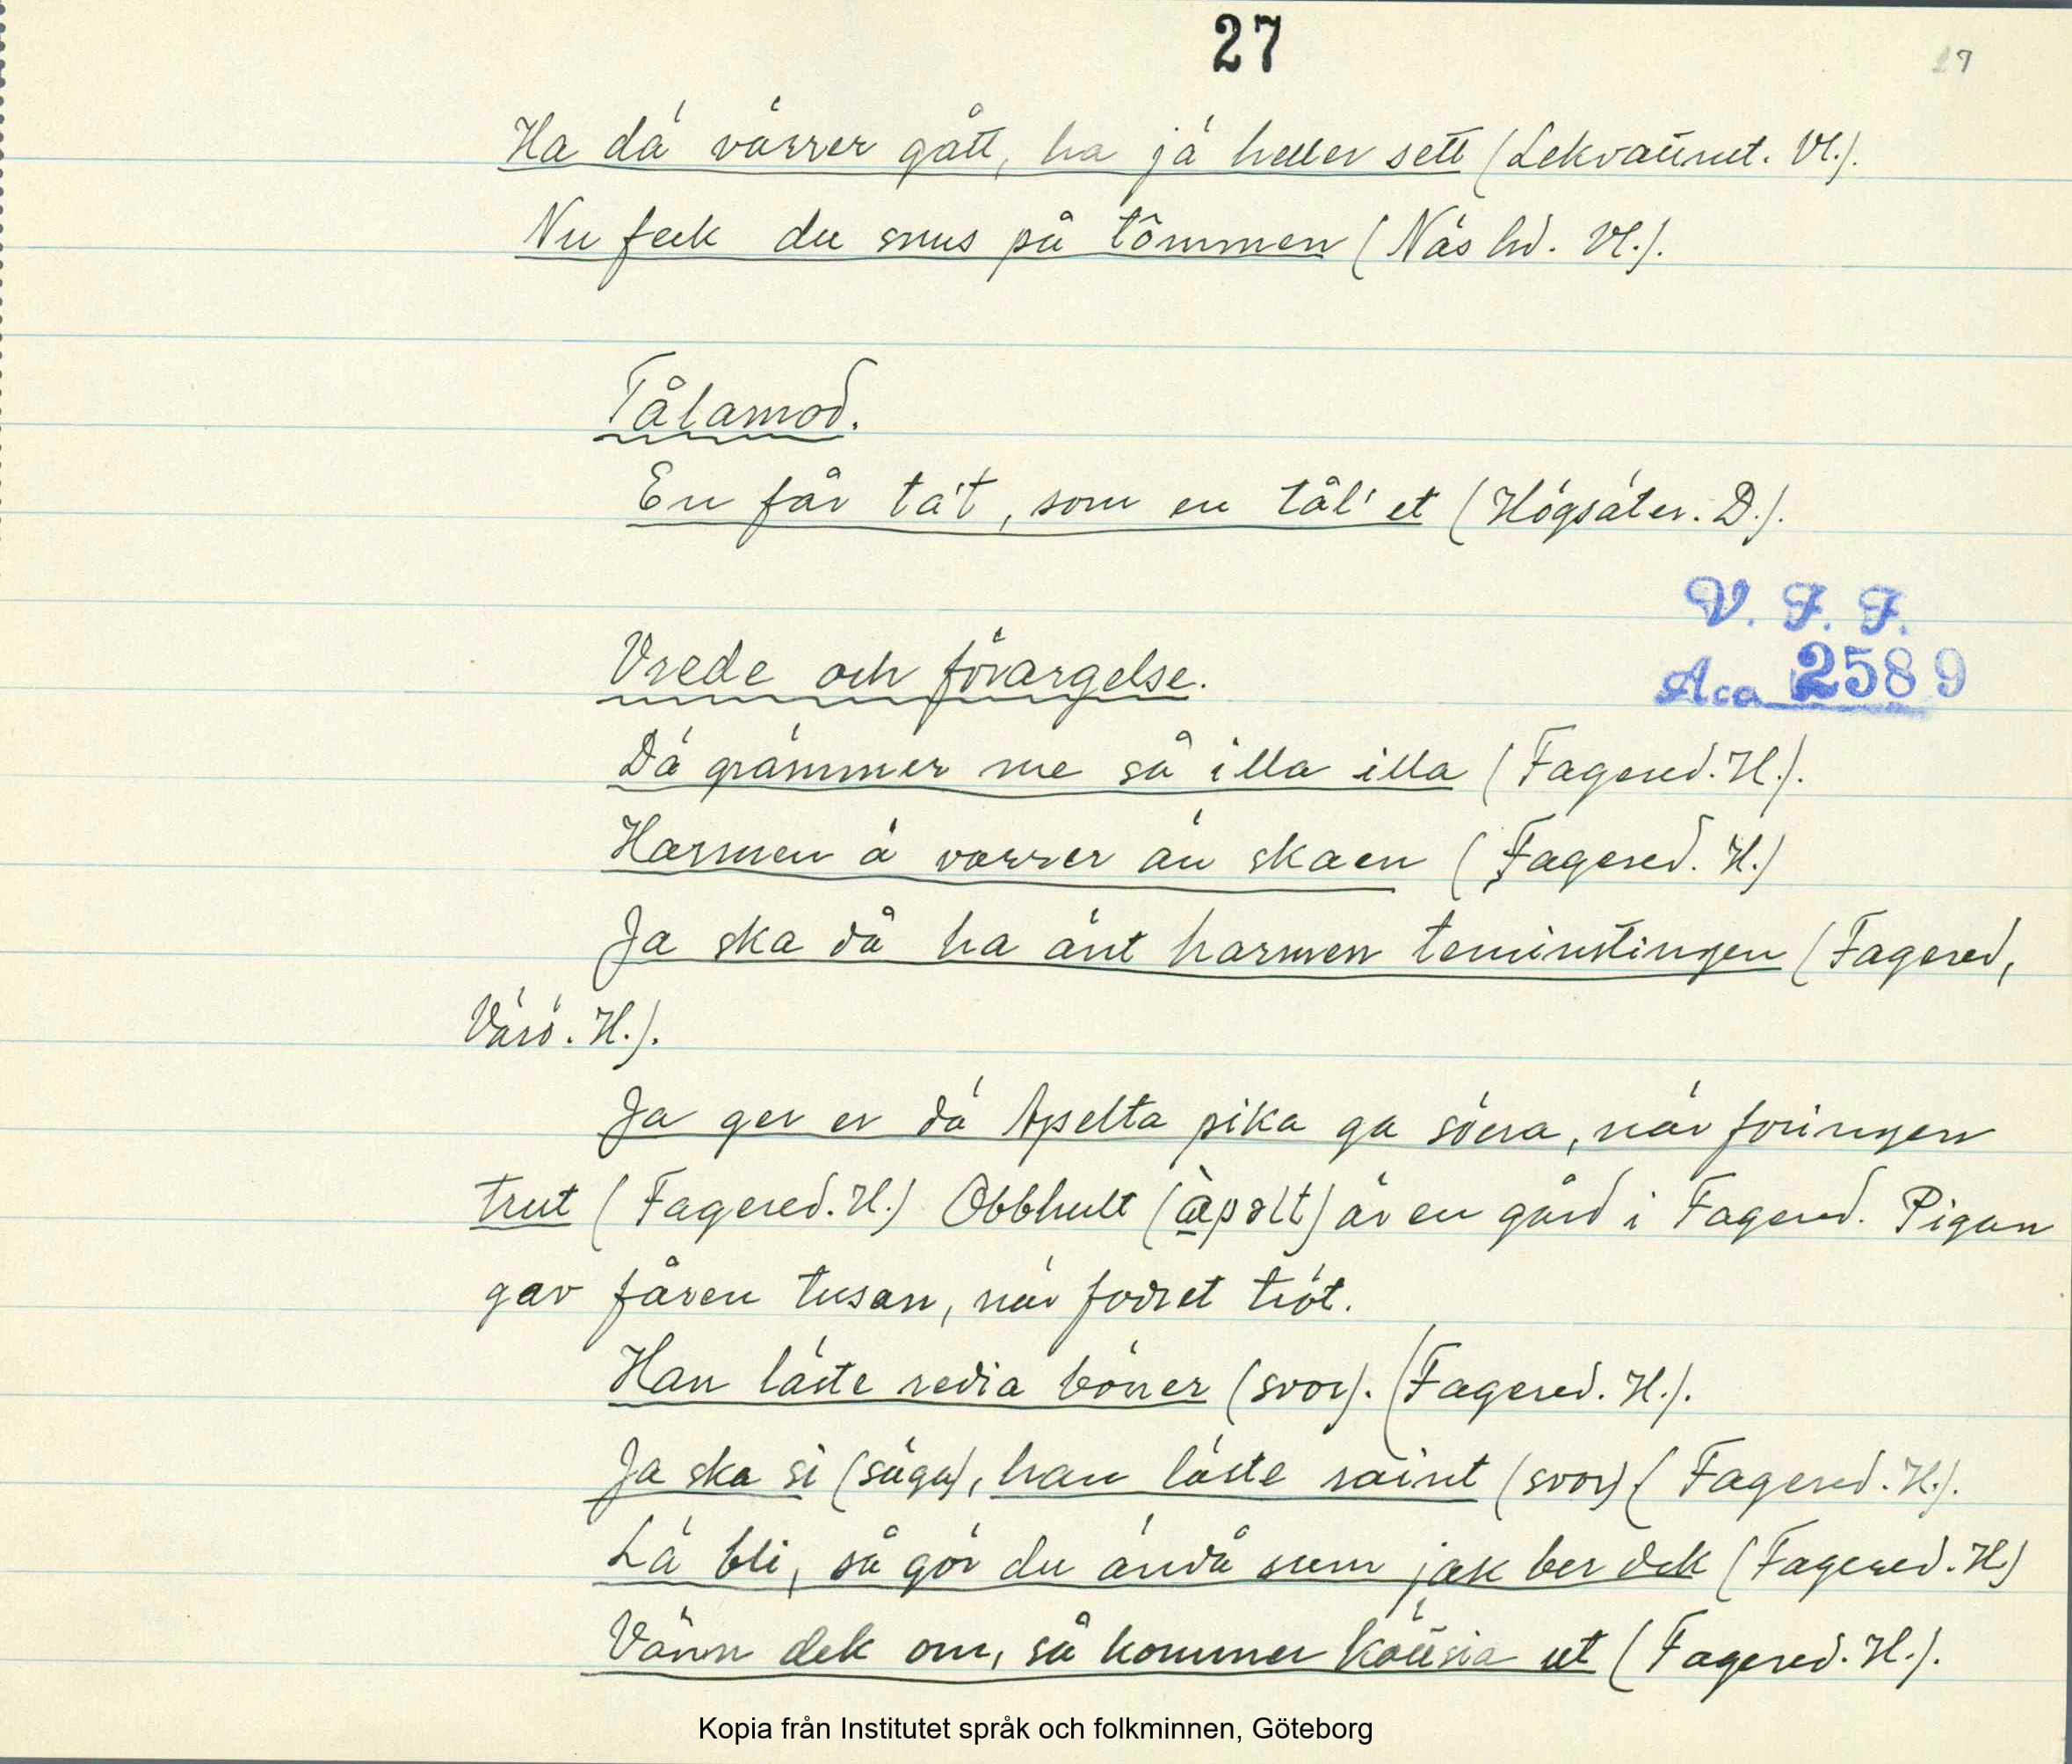 27
27
Ha dä värrer gått, ha jä heller sett (Lekvattnet. Vl.).
Nu feck du snus på tômmen (Näs hd. Vl.).
Tålamod.
En får ta't, som en tål'et (Högsäter. D.).
V. F. F.
Acc 2589
Vrede och förargelse.
Dä grämmer me så illa illa (Fagered. H.).
Harmen ä varrer än skaen (Fagered. H.)
Ja ska då ha änt harmen teminstingen (Fagered,
Värö. H.).
Ja ger er dä Apelta pika ga söera, när foringen
trut (Fagered. H.) Obbhult (àpəlt) är en gård i Fagered. Pigan
gav fåren tusan, när fodret tröt.
Han läste redia böner (svor). (Fagered. H.).
Ja ska si (säga), han läste raint (svor) (Fagered. H.).
Lä bli, så gör du ändå sum jak ber dek (Fagered. H.)
Vänn dek om, så kommer ut (Fagered. H.).
Kopia från Institutet språk och folkminnen, Göteborg